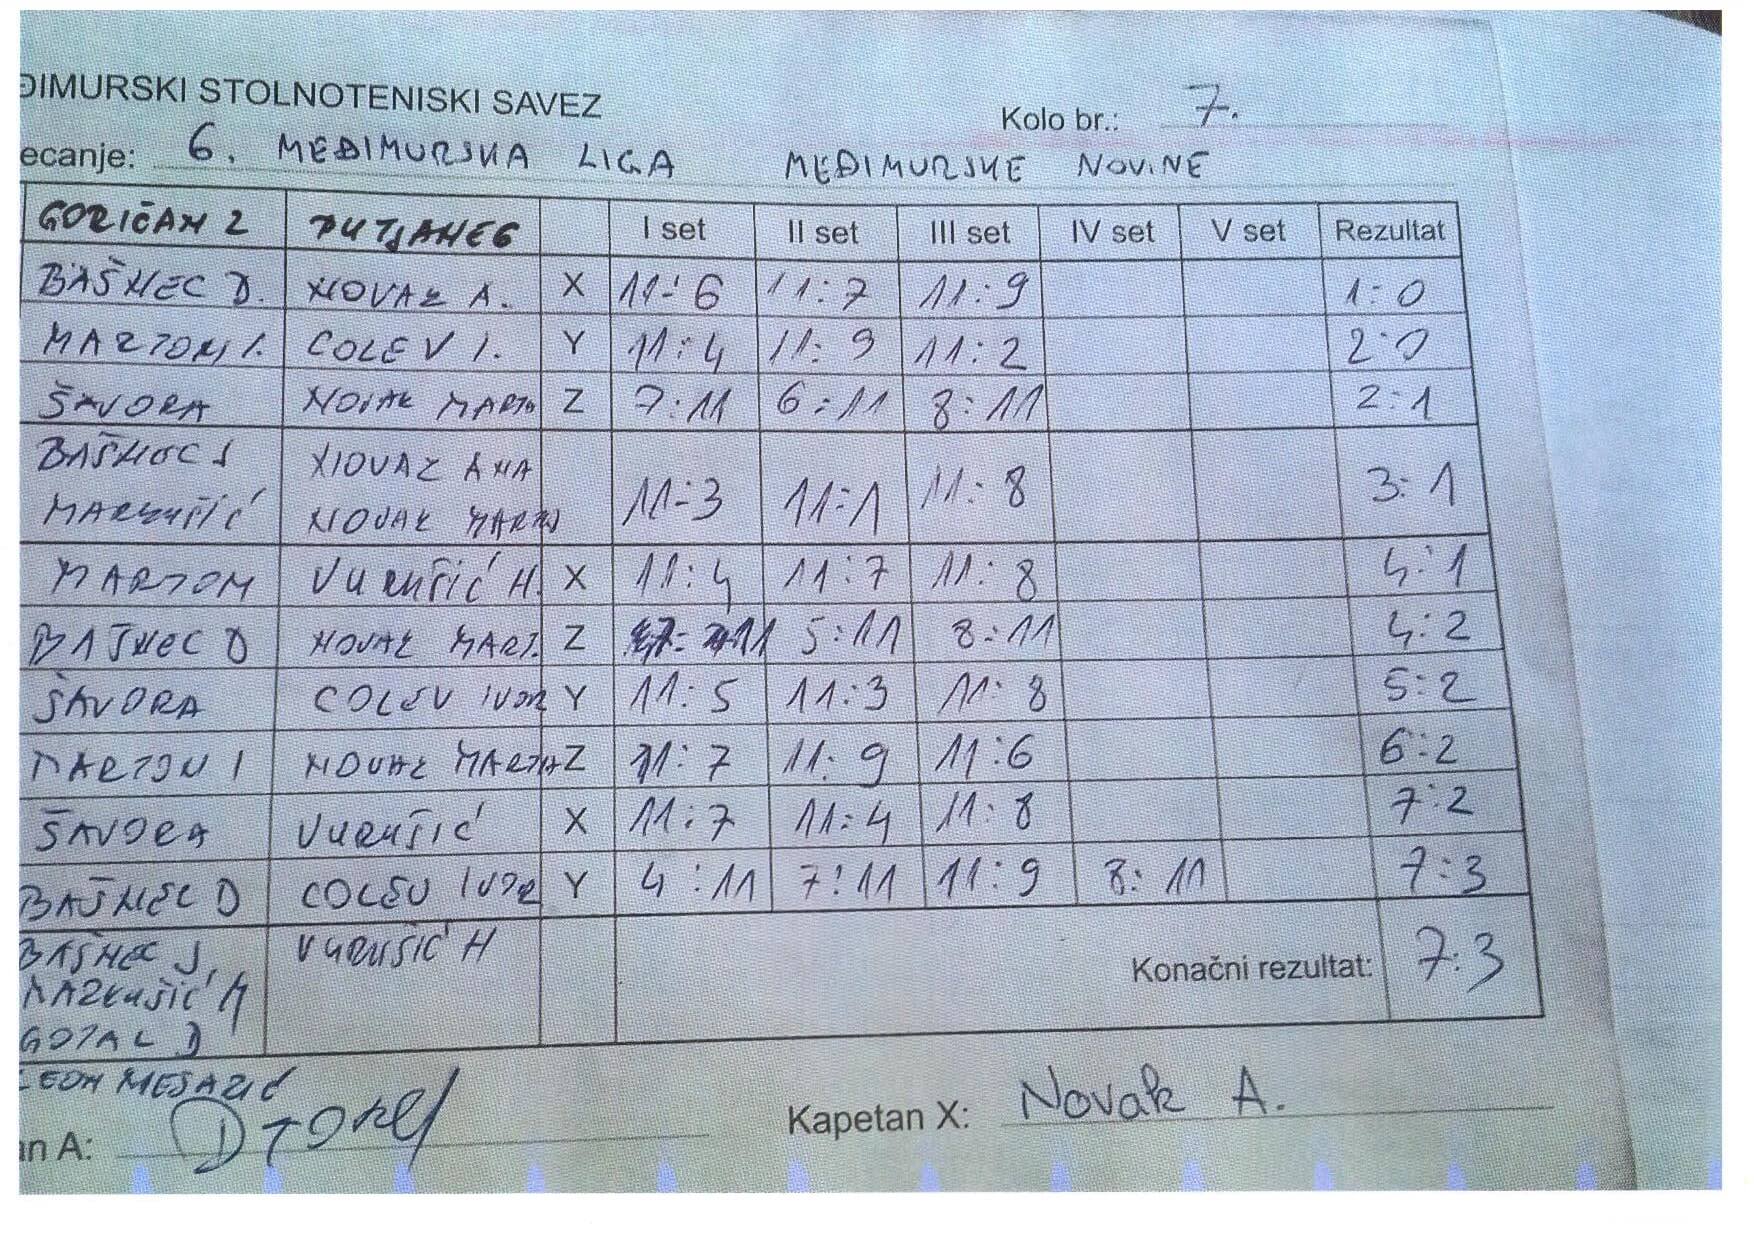 ĐIMURSKI STOLNOTENISKI SAVEZ
Kolo br.: 7.
ecanje: 6. MEĐIMURSKA LIGA MEĐIMURSKE NOVINE
GORIČAN 2 PUTJANEC I set II set III set IV set V set Rezultat
BAŠNEC D. NOVAK A. X 11:6 11:7 11:9 1:0
MARTON I. COLEV I. Y 11:4 11:9 11:2 2:0
ŠAVORA NOVAK MARTA Z 7:11 6:11 8:11 2:1
BAŠNEC J NOVAK ANA
MARKUŠIĆ NOVAK MARTA 11:3 11:1 11:8 3:1
MARTON VURUŠIĆ H. X 11:4 11:7 11:8 4:1
BAŠNEC D NOVAK MART. Z 5:11 8:11 4:2
ŠAVORA COLEV IVOR Y 11:5 11:3 11:8 5:2
MARTON I NOVAK MARTA Z 11:7 11:9 11:6 6:2
ŠAVORA VURUŠIĆ X 11:7 11:4 11:8 7:2
BAŠNEC D COLEV IVOR Y 4:11 7:11 11:9 8:11 7:3
BAŠNEC J, VURUŠIĆ H
MARKUŠIĆ M Konačni rezultat: 7:3
GOTAL D
LEON MESARIĆ
an A: Kapetan X: Novak A.